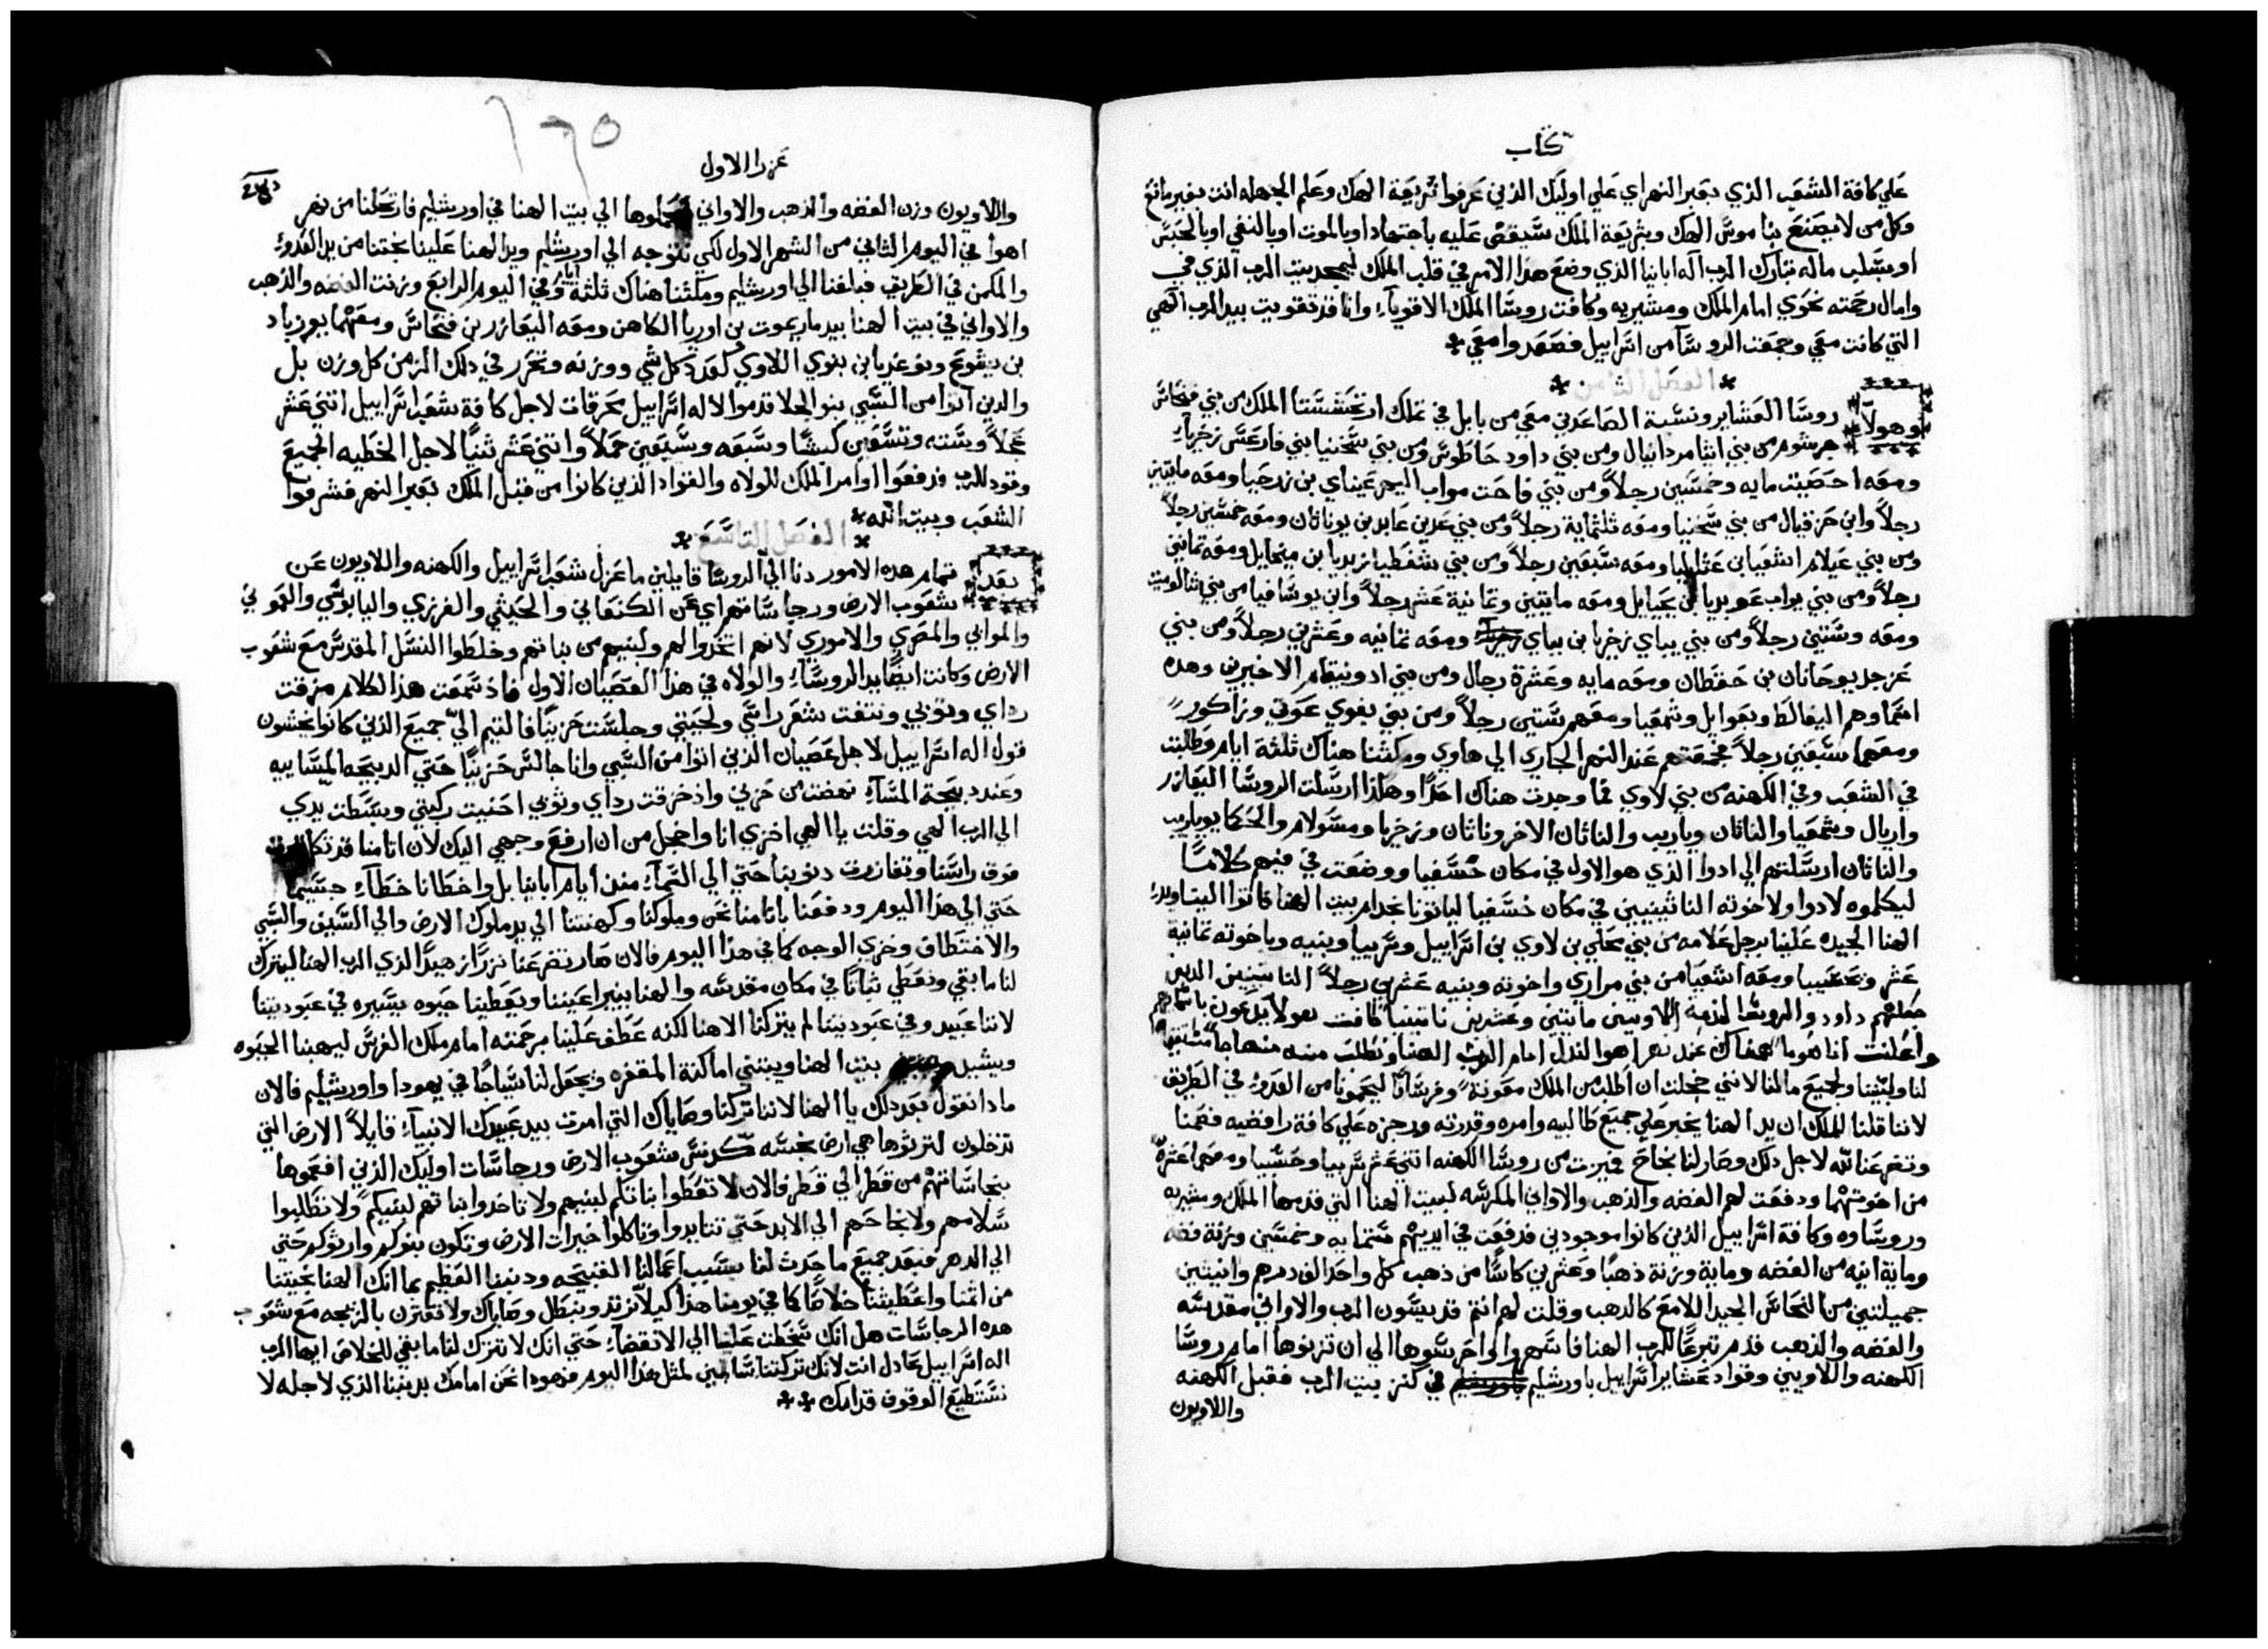 كتاب
علي كافة الشعب الذي بعبر النهر اي علي اوليك الذين عرفوا شريعة الهك وعلم الجهله انت بغير مانع
وكل من لا يصنع بناموس الهك وبشريعة الملك سيقضي عليه باجتهاد او بالموت او بالنفي او بالحبس
او بسلب ماله تبارك الرب اله ابانيا الذي وضع هذا الامر في قلب الملك ليمجد بيت الرب الذي في
وامال رحمته نحوي امام الملك ومشيريه وكافت روسا الملك الاقويآء وانا قد تقويت بيد الرب الهي
التي كانت معي وجمعت الروسآ من اسراييل فصعدوا معي
الفصل الثامن
وهولآ روسا العشاير ونسبة الصاعدين معي من بابل في تملك ارتحشستا الملك من بني فنحاس
جرشوم من بني ايثامر دانيال ومن بني داود حاطوس ومن بني شخنيا بني فارعس زخريا
ومعه احصيت مايه وخمسين رجلاً ومن بني فاحت مواب اليهو عيناي بن زرحيا ومعه مايتين
رجلاً وابن حزقيال من بني شخنيا ومعه ثلثماية رجلاً ومن بني عدين عابد بن يوناثان ومعه خمسين رجلاً
ومن بني عيلام اشعيا بن عثليا ومعه سبعين رجلاً ومن بني شفطيا زبديا بن ميخايل ومعه ثمانين
رجلاً ومن بني يواب عوبديا بن يحيايل ومعه مايتين وثمانية عشر رجلاً وابن يوشافيا من بني شالوميت
ومعه وستين رجلاً ومن بني يباي زخريا بن بباي ومعه ثمانيه وعشرين رجلاً ومن بني
عزجد يوحانان بن حقطان ومعه مايه وعشرة رجال ومن بني ادونيقام الاخيرين وهده
اسماوهم اليفالط ويعوايل وشمعيا ومعهم ستين رجلاً ومن بني بغوي عوتي وزاكور
ومعهما سبعين رجلاً فجمعتهم عند النهر الجاري الي هاوي ومكثنا هناك ثلثة ايام وطلبت
في الشعب وفي الكهنه من بني لاوي فما وجدت هناك احداً وهكذا ارسلت الروسا اليعازر
واريال وشمعيا والناثان وياريب والناثان الاخر وناثان وزخريا ومسولام والحكما يوياريب
والناثان ارسلتهم الي ادوا الذي هو الاول في مكان خسفيا ووضعت في فيهم كلاماً
ليكلموه لادوا ولاخوته الناثينيين في مكان خسفيا لياتونا بخدام بيت الهنا فاتوا الينا وبيد
الهنا الجيده علينا برجل علامه من بني محلي بن لاوي بن اسراييل وشربيا وبنيه وباخوته ثمانية
عشر وحعشيبا ومعه اشعيا من بني مراري واخوته وبنيه عشرين رجلاً الناثينيين الدين
جعلهم داود والروسا لخدمة اللاويين مايتين وعشرين ناثينيا كافت هولآ يدعون باسماهم
واعلنت انا صوماً هناك عند نهر اهوا لنذل امام الرب الهنا ونطلب منه منهاجاً مستقيماً
لنا ولبنينا ولجميع مالنا لانني خجلت ان اطلب من الملك معونة وفرساناً ليحمونا من العدو في الطريق
لاننا قلنا للملك ان يد الهنا بخير علي جميع طالبيه وامره وقدرته ورجزه علي كافة رافضيه فصمنا
وتضرعنا لله لاجل دلك وصار لنا نجاح فميزت من روسا الكهنه اثني عشر شربيا وحسبيا ومعهما عشرة
من اخوتهما ودفعت لهم الفضه والذهب والاواني المكرسه لبيت الهنا التي قدمها الملك ومشيريه
وروساوه وكافة اسراييل الذين كانوا موجودين فدفعت في ايديهم ستمايه وخمسين وزنة فضه
وماية انيه من الفضه وماية وزنة ذهباً وعشرين كاساً من ذهب كل واحد الف درهم وانيتين
جميلتين من النحاس الجيد اللامع كالدهب وقلت لهم انتم قديسون الرب والاواني مقدسه
والفضه والذهب قدم تبرعاً للرب الهنا فاسهروا واحرسوها الي ان تزنوها امام روسا
الكهنه واللاويين وقواد عشاير اسراييل باورشليم في كنز بيت الرب فقبل الكهنه
واللاويون
١٦٥
عزرا الاول
واللاويون وزن الفضه والذهب والاواني ليحملوها الي بيت الهنا في اورشليم فارتحلنا من نهر
اهوا في اليوم الثاني من الشهر الاول لكي نتوجه الي اورشليم ويد الهنا علينا نجتنا من يد العدو
والمكمن في الطريق فبلغنا الي اورشليم ومكثنا هناك ثلثة ايام وفي اليوم الرابع وزنت الفضه والذهب
والاواني في بيت الهنا بيد ماريموت بن اوريا الكاهن ومعه اليعازر بن فنحاس ومعهما يوزباد
بن يشوع ونوعديا بن بنوي اللاوي كعدد كل شي ووزنه وتحرر في دلك الزمن كل وزن بل
والدين اتوا من السبي بنو الجلا قدموا لاله اسراييل محرقات لاجل كافة شعب اسراييل اثني عشر
عجلاً وسته وتسعين كبشاً وسبعه وسبعين حملاً واثني عشر ثنياً لاجل الخطيه الجميع
وقود للرب فدفعوا اوامر الملك للولاه والقواد الذين كانوا من قبل الملك بعبر النهر فشرفوا
الشعب وبيت الله
الفصل التاسع
بعد تمام هده الامور دنا الي الروسا قايلين ما عزل شعب اسراييل والكهنه واللاويون عن
شعوب الارض ورجاساتهم اي عن الكنعاني والحيثي والفرزي واليابوسي والعموني
والموابي والمصري والاموري لانهم اتخدوا لهم ولبنيهم من بناتهم وخلطوا النسل المقدس مع شعوب
الارض وكانت ايضاً يد الروسآء والولاه في هذا العصيان الاول فاد سمعت هذا الكلام مزقت
رداي وثوبي ونتفت شعر راسي ولحيتي وجلست حزيناً فالتيم اليّ جميع الذين كانوا يخشون
قول اله اسراييل لاجل عصيان الذين اتوا من السبي وانا جالس حزيناً حتي الدبيحه المساييه
وعند دبيحة المسآء نهضت من حزني واذ خرقت رداي وثوبي احنيت ركبتي وبسطت يدي
الي الرب الهي وقلت يا الهي اخزي انا واخجل من ان ارفع وجهي اليك لان اثامنا قد تكاثرت
فوق راسنا وتفازرت دنوبنا حتي الي السمآء مند ايام ابانيا بل واخطانا خطآء جسيماً
حتي الي هذا اليوم ودفعنا باثامنا نحن وملوكنا وكهنتنا الي يد ملوك الارض والي السيف والسبي
والاختطاف وخزي الوجه كما في هذا اليوم فالان صار تضرعنا نزراً زهيداً الذي الرب الهنا ليترك
لنا ما بقي ونعطي ثباتاً في مكان مقدسه والهنا ينير اعيننا ويعطينا حيوه يسيره في عبوديتنا
لاننا عبيد وفي عبوديتنا لم يتركنا الاهنا لكنه عطف علينا برحمته امام ملك الفرس ليهبنا الحيوه
ويشيد بيت الهنا ويبتني اماكنه المقفره ويجعل لنا سياجاً في يهودا واورشليم فالان
مادا نقول بعد دلك يا الهنا لاننا تركنا وصاياك التي امرت بيد عبيدك الانبيآء قايلاً الارض التي
تدخلون لترثوها هي ارض نجسه كدنس شعوب الارض ورجاسات اوليك الذين افعموها
بنجاساتهم من قطر الي قطر فالان لا تعطوا بناتكم لبنيهم ولا تاخدوا بناتهم لبنيكم ولا تطلبوا
سلامهم ولا نجاحهم الي الابد حتي تتايدوا وتاكلوا خيرات الارض وتكون بنوكم وارثوكم حتي
الي الدهر فبعد جميع ما حدث لنا بسبب اعمالنا القبيحه ودنبنا العظيم بما انك الهنا نجيتنا
من اثمنا واعطيتنا خلاصاً كما في يومنا هذا كيلا نرتد ونبطل وصاياك ولا نقترن بالزيجه مع شعوب
هده الرجاسات هل انك سخطت علينا الي الانقضاء حتي انك لا تترك لنا ما بقي للخلاص ايها الرب
اله اسراييل عادل انت لانك تركتنا سالمين لمثل هذا اليوم فهودا نحن امامك بدنبنا الذي لاجله لا
نستطيع الوقوف قدامك